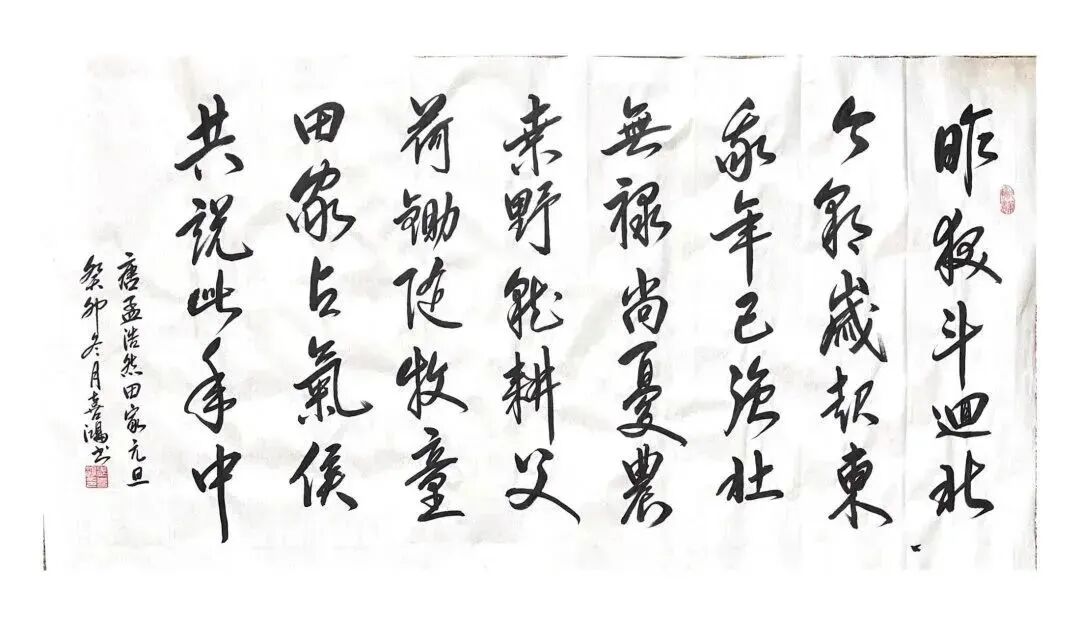 昨夜斗迴北
今朝歲起東
我年已強壮
無禄尚憂農
桑野就耕父
荷鋤随牧童
田家占氣候
共説此年中
唐孟浩然田家元旦
癸卯冬月喜鴻书